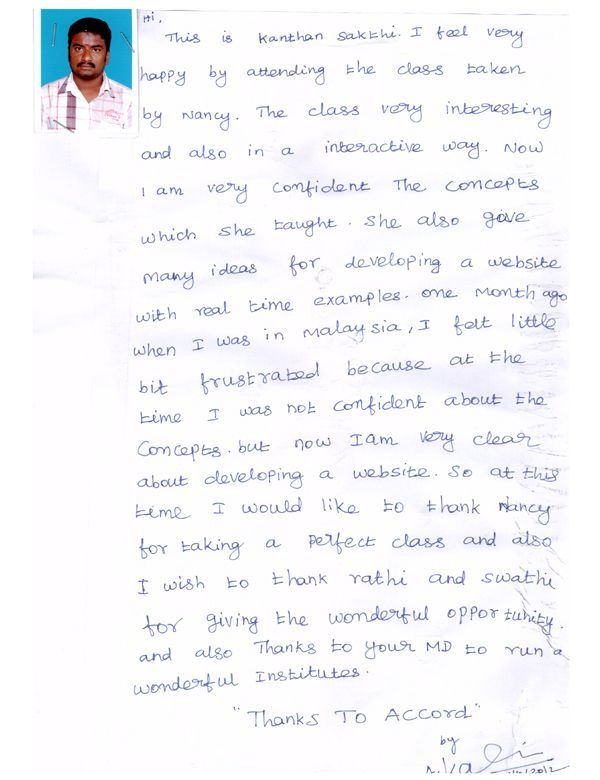 Hi,
This is Kanthan Sakthi. I feel very
happy by attending the class taken
by Nancy. The class very interesting
and also in a interactive way. Now
I am very confident The concepts
which she taught. She also gave
many ideas for developing a website
with real time examples. one month ago
when I was in malaysia, I felt little
bit frustrated because at the
time I was not confident about the
Concepts. but now I am very clear
about developing a website. So at this
time I would like to thank Nancy
for taking a perfect class and also
I wish to thank rathi and swathi
for giving the wonderful opportunity.
and also Thanks to your MD to run a
wonderful Institutes.
"Thanks To Accord"
by